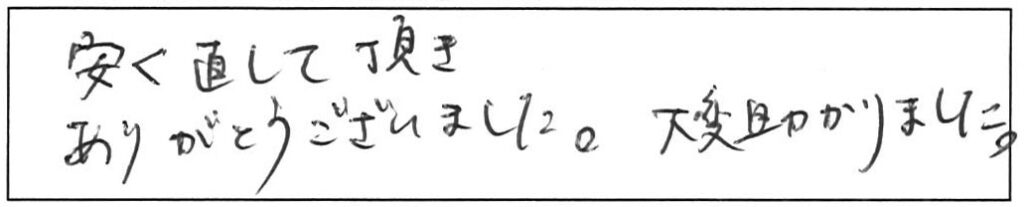 安く直して頂き
ありがとうございました。大変助かりました。